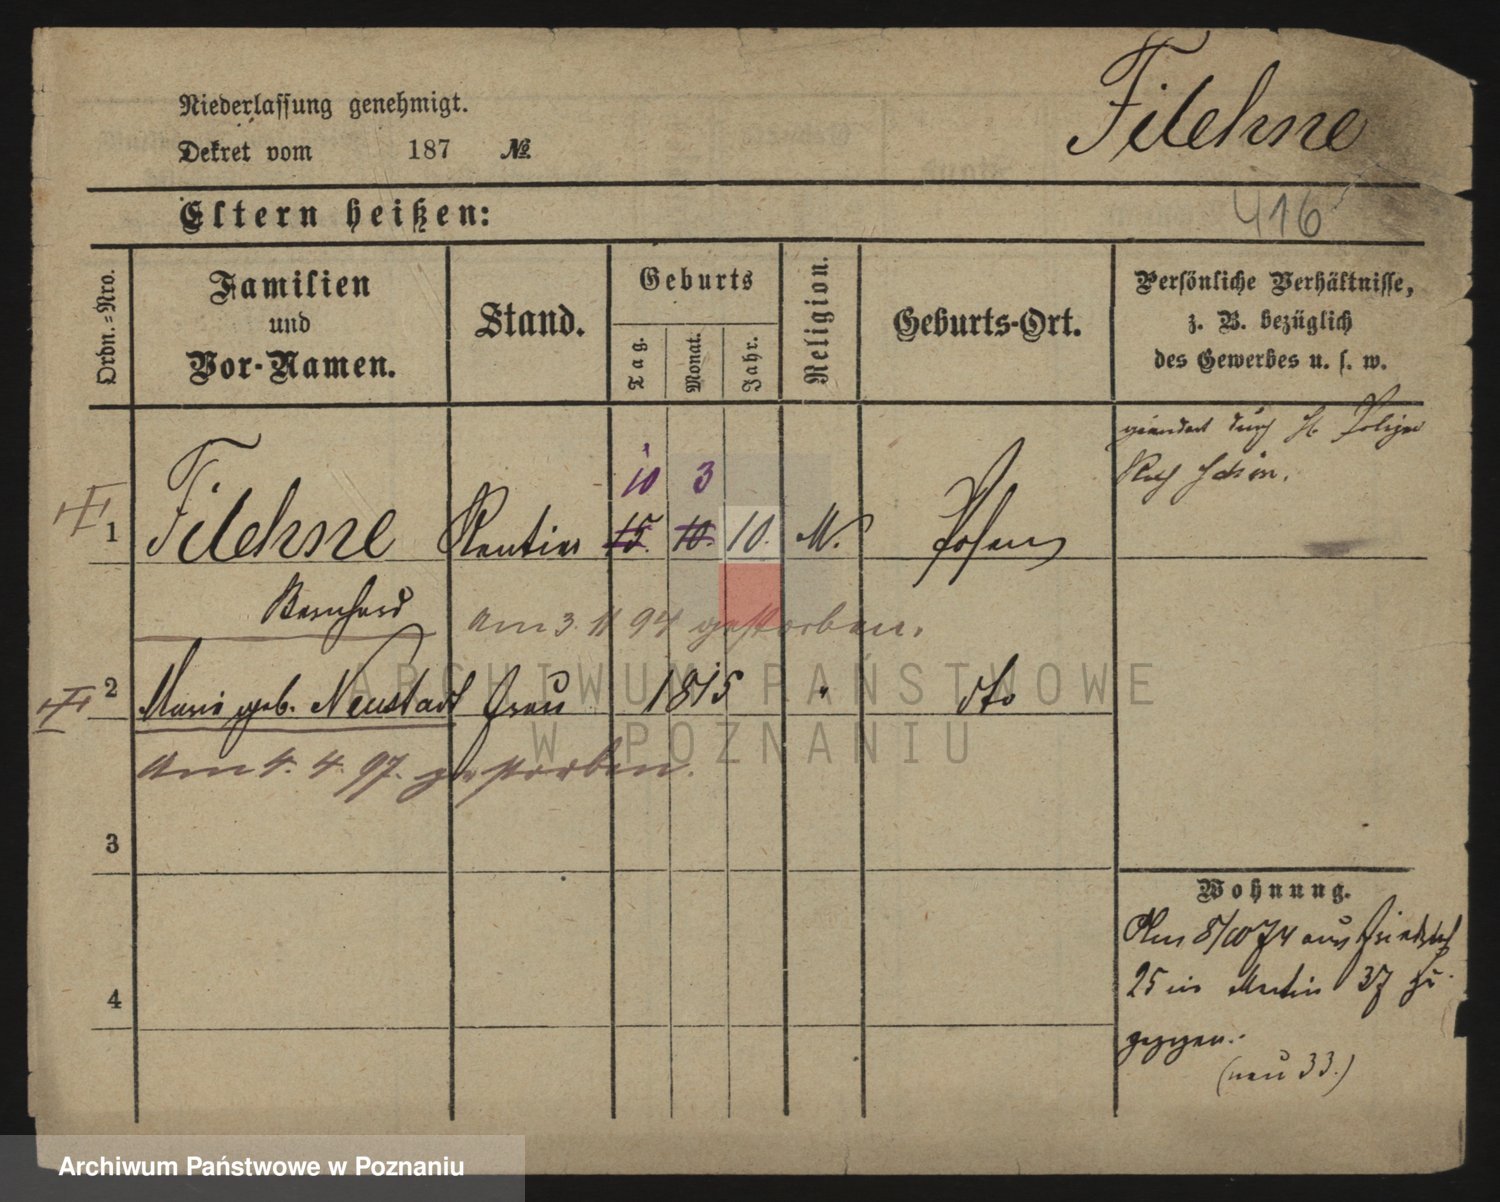 Niederlassung genehmigt.
Filehne
Dekret vom 187 №
Eltern heißen:
416
Ordn.-Nro.
Familien
und
Vor-Namen.
Stand.
Geburts
Tag.
Monat.
Jahr.
Religion.
Geburts-Ort.
Persönliche Verhältnisse,
z. B. bezüglich
des Gewerbes u. s. w.
geändert durch H. Polizei
Schön.
10 3
1 Filehne Rentier 15. 10. 10. M. Posen
Bernhard
am 3. 11 94 gestorben.
2 Marie geb. Neustadt Frau 1815 " dto
am 4. 4. 97. gestorben.
3
4
Wohnung.
Am 8/10 74 aus Friedrichst
25 in Martin 37 zu
gezogen.
(neu 33.)
ARCHIWUM PAŃSTWOWE
W POZNANIU
Archiwum Państwowe w Poznaniu